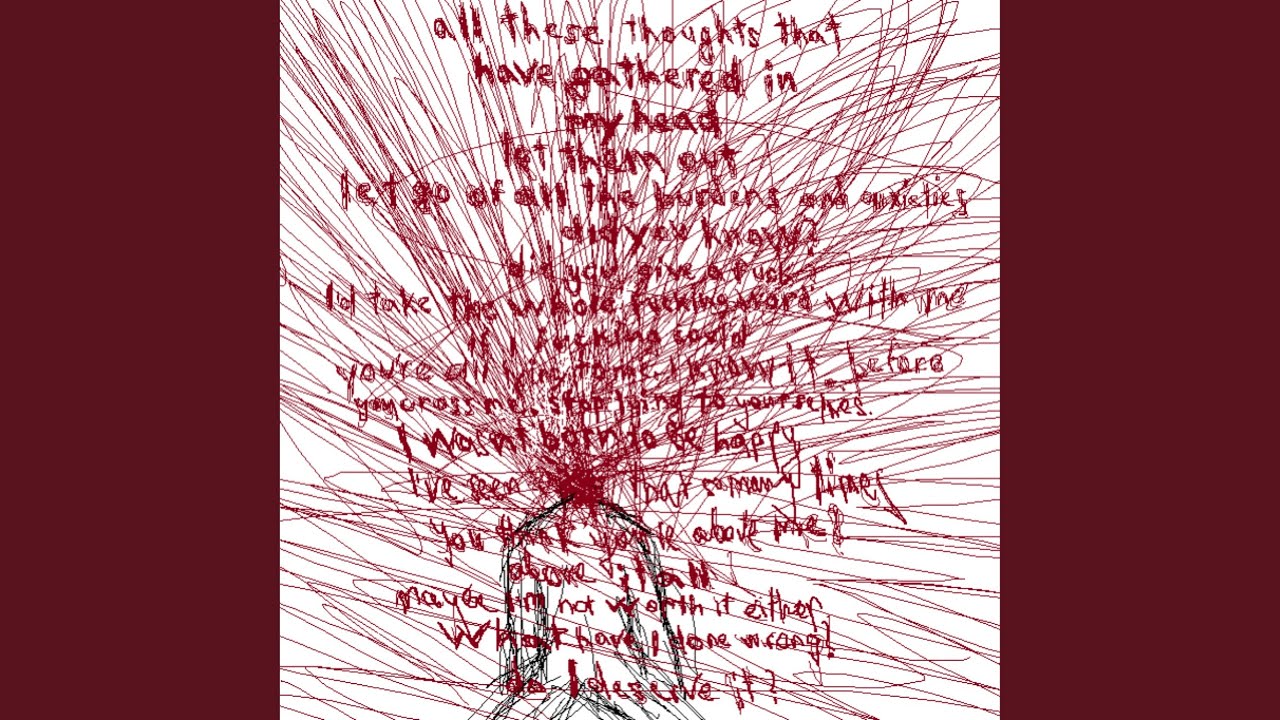 all these thoughts that
have gathered in
my head
let them out
let go of all the burdens and anxieties
did you know?
did you give a fuck?
I'd take the whole fucking word with me
if I fucking could
you're all lying to me, I know it before
you cross me. stop lying to yourselves.
I wasn't born to be happy
I've seen that so many times
you think you're above me?
above it all
maybe I'm not worth it either
What have I done wrong?
do I deserve it?